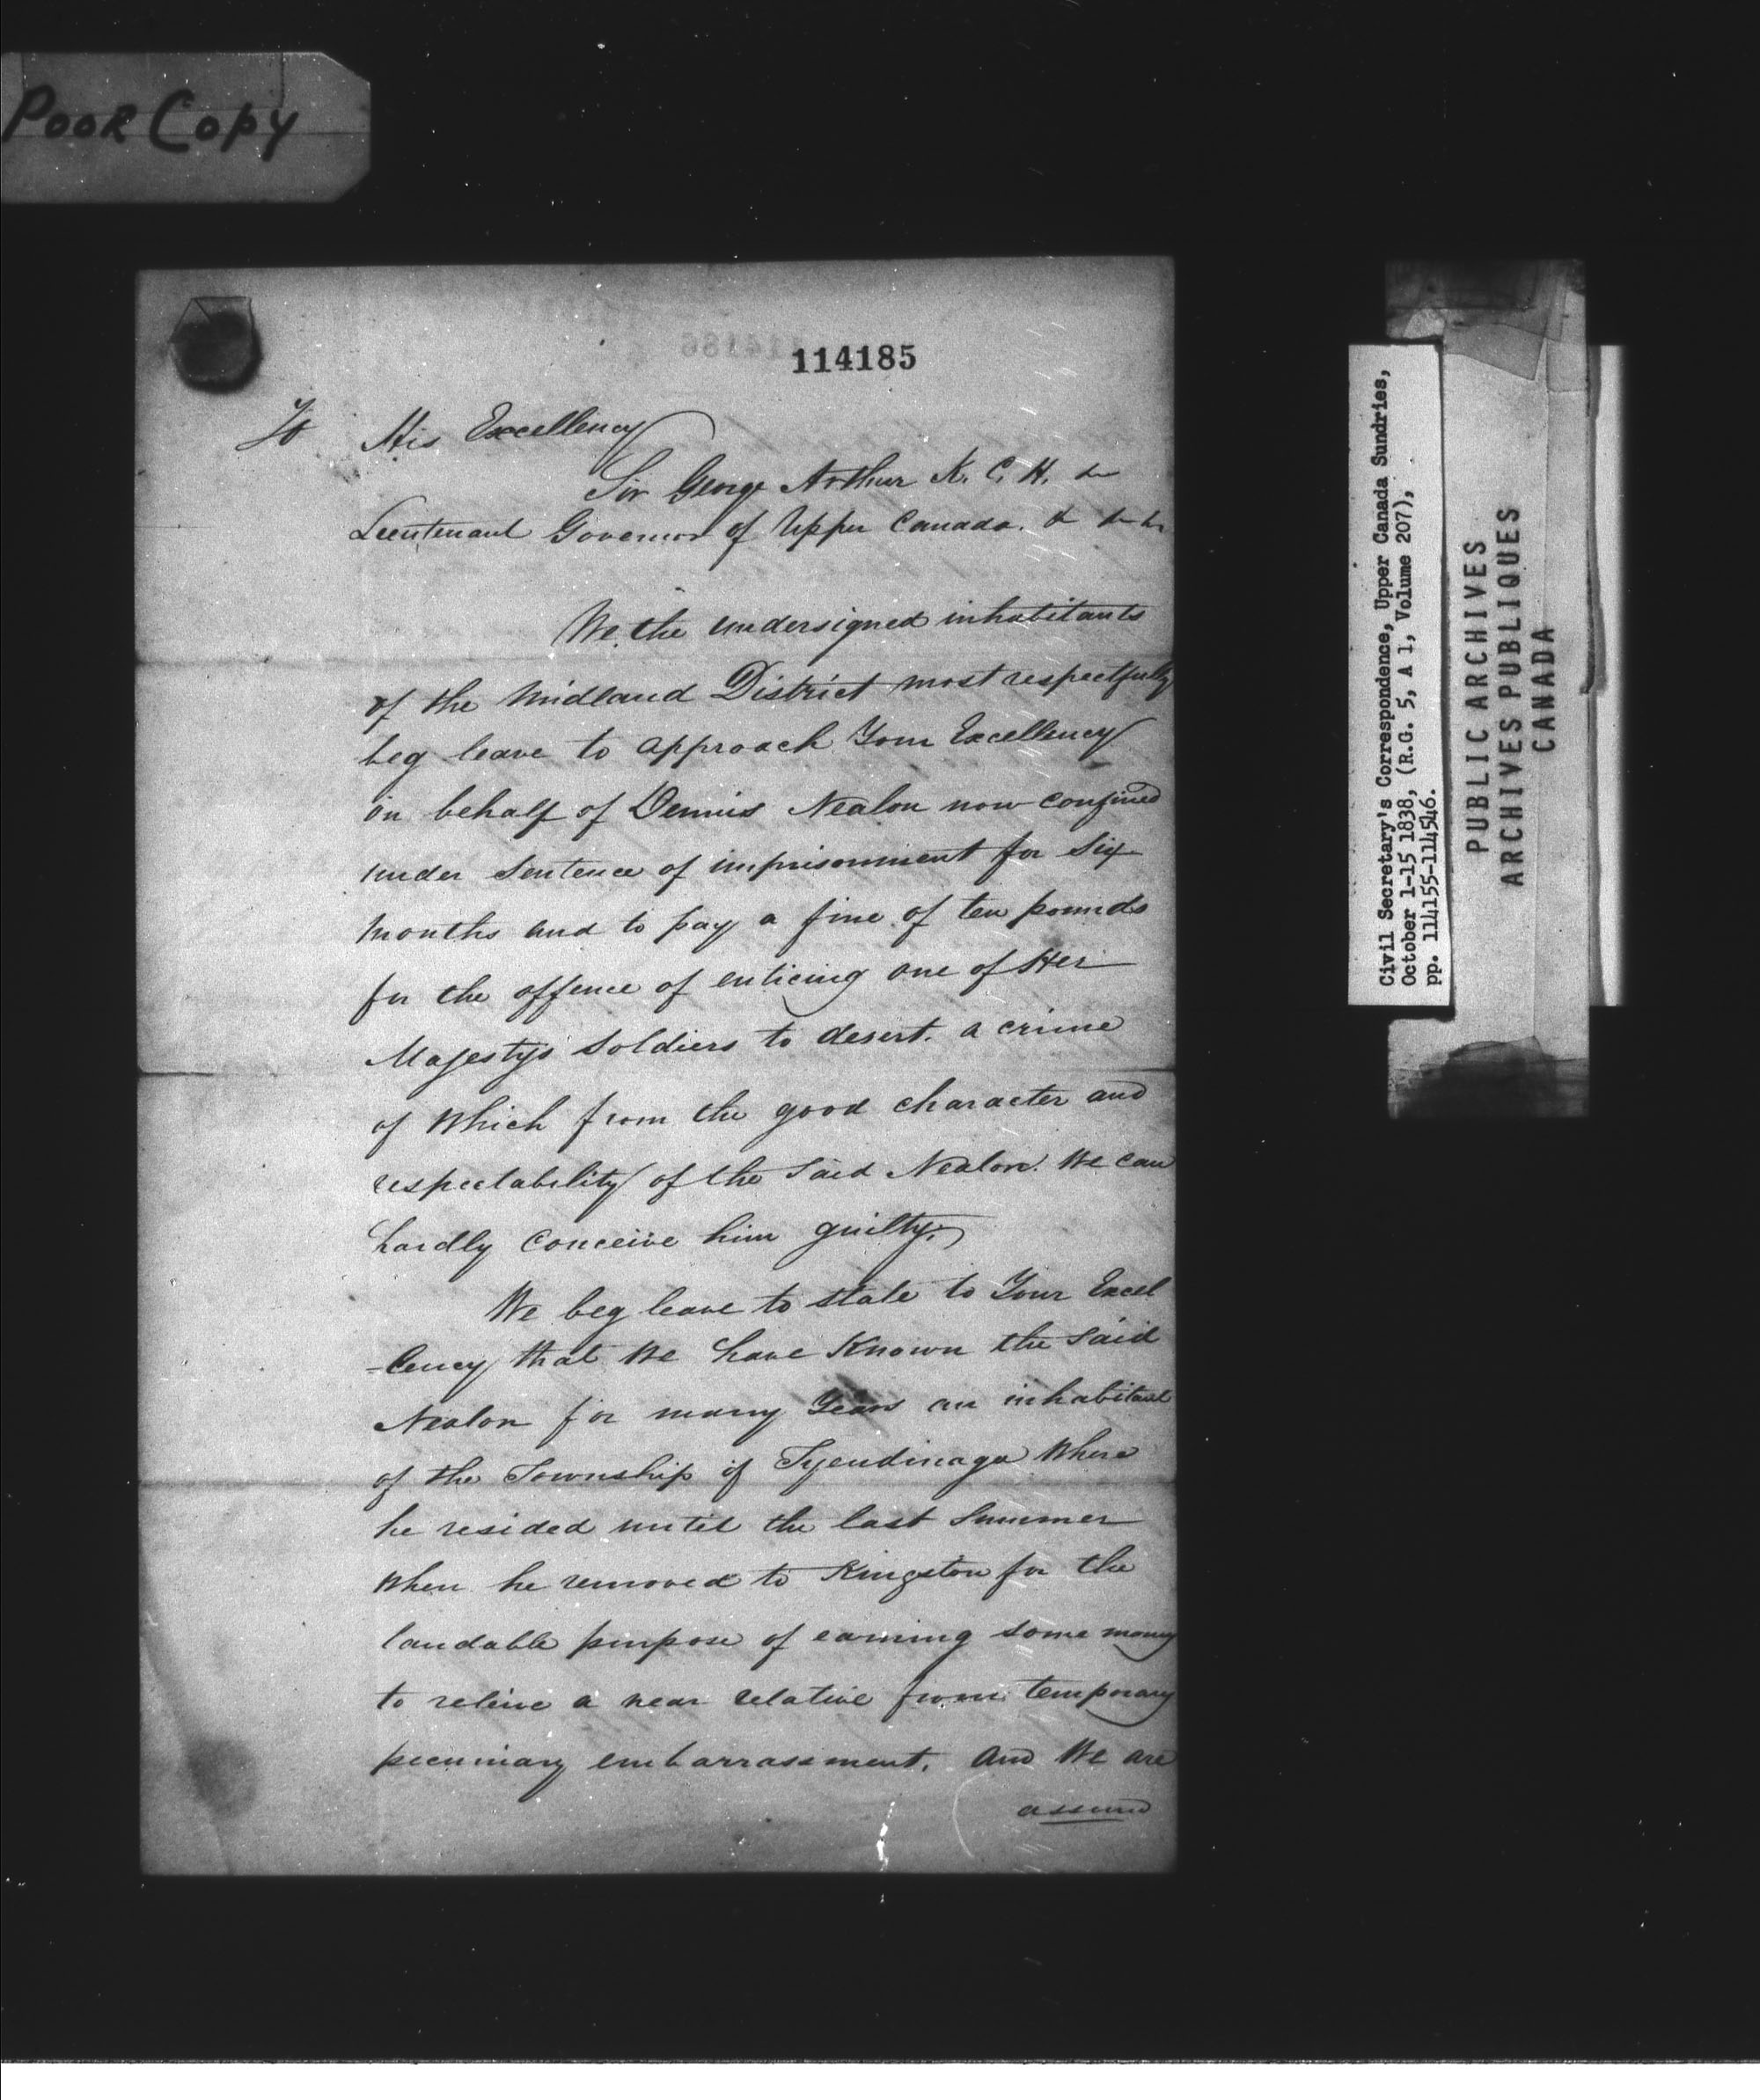 Poor Copy
114185
To His Excellency
Sir George Arthur K. C. H. &c
Lieutenant Governor of Upper Canada. & &c &c
We the undersigned inhabitants
of the Midland District most respectfully
beg leave to approach Your Excellency
in behalf of Dennis Nealon now confined
under Sentence of imprisonment for Six
Months and to pay a fine of ten pounds
for the offence of enticing one of Her
Majestys Soldiers to desert. a crime
of Which from the good character and
respectability of the Said Nealon. We can
hardly Conceive him guilty.
We beg leave to state to Your Excel
-lency that We have Known the Said
Nealon for many Years an inhabitant
of the Township of Tyendinaga Where
he resided until the last Summer
When he removed to Kingston for the
laudable purpose of earning some money
to relieve a near relative from temporary
pecuniary embarrassment. And We are
assured
Civil Secretary's Correspondence, Upper Canada Sundries,
October 1-15 1838, (R.G. 5, A 1, Volume 207),
pp. 114155-114546.
PUBLIC ARCHIVES
ARCHIVES PUBLIQUES
CANADA